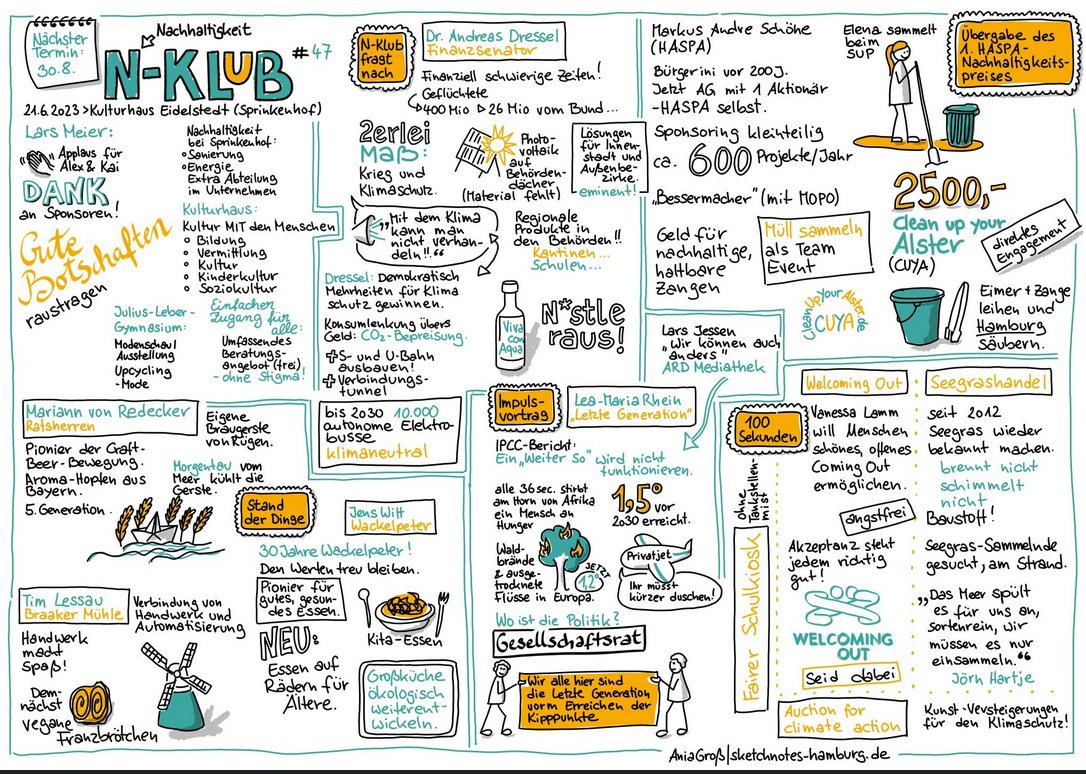 Nächster
Termin:
30.8.
Nachhaltigkeit
N-KLUB #47
21.6.2023 > Kulturhaus Eidelstedt (Sprinkenhof)
Lars Meier:
Applaus für
Alex & Kai
DANK
an Sponsoren!
Gute
Botschaften
raustragen
Nachhaltigkeit
bei Sprinkenhof:
Sanierung
Energie
Extra Abteilung
im Unternehmen
Kulturhaus:
Kultur MIT den Menschen
Bildung
Vermittlung
Kultur
Kinderkultur
Soziokultur
Julius-Leber-
Gymnasium:
Modenschau
Ausstellung
Upcycling
-Mode
Einfachen
Zugang für
alle:
Umfassendes
Beratungs-
angebot (frei)
- ohne Stigma!
N-Klub
fragt
nach
Dr. Andreas Dressel
Finanzsenator
Finanziell schwierige Zeiten!
Geflüchtete
400 Mio ▷ 26 Mio vom Bund...
2erlei
Maß:
Krieg und
Klimaschutz.
Photo-
voltaik
auf
Behörden-
dächer
(Material fehlt)
Lösungen
für Innen-
stadt und
Außenbe-
zirke.
eminent!
"Mit dem Klima
kann man
nicht verhan-
deln!!"
Regionale
Produkte in
den Behörden!!
Kantinen...
Schulen...
Dressel: Demokratisch
Mehrheiten für Klima
schutz gewinnen.
Konsumlenkung übers
Geld: CO₂-Bepreisung.
+ S- und U-Bahn
ausbauen!
+ Verbindungs-
tunnel
Viva
con
Aqua
N*stle
raus!
bis 2030 10.000
autonome Elektro-
busse
klimaneutral
Markus Andre Schöne
(HASPA)
Bürger ini vor 200 J.
Jetzt AG mit 1 Aktionär
-HASPA selbst.
Sponsoring kleinteilig
ca. 600 Projekte/Jahr
"Bessermacher" (mit MOPO)
Geld für
nachhaltige,
haltbare
Zangen
Müll sammeln
als Team
Event
Elena sammelt
beim
SUP
Übergabe des
1. HASPA-
Nachhaltigkeits-
preises
2500,-
Clean up your
Alster
(CUYA)
direktes
Engagement
CleanUpYourAlster.de
CUYA
Eimer + Zange
leihen und
Hamburg
säubern.
Lars Jessen
"Wir können auch
anders"
ARD Mediathek
Mariann von Redecker
Ratsherren
Pionier der Craft-
Beer-Bewegung.
Aroma-Hopfen aus
Bayern.
5. Generation.
Eigene
Braugerste
von Rügen.
Morgentau vom
Meer kühlt die
Gerste.
Stand
der Dinge
Jens Witt
Wackelpeter
30 Jahre Wackelpeter!
Den Werten treu bleiben.
Pionier für
gutes, gesun-
des Essen.
NEU:
Essen auf
Rädern für
Ältere.
Kita-Essen
Großküche
ökologisch
weiterent-
wickeln.
Tim Lessau
Braaker Mühle
Verbindung von
Handwerk und
Automatisierung
Handwerk
macht
Spaß!
Dem-
nächst
vegane
Franzbrötchen
Impuls-
vortrag
Lea-Maria Rhein
"Letzte Generation"
IPCC-Bericht:
Ein "Weiter So" wird nicht
funktionieren.
alle 36 sec. stirbt
am Horn von Afrika
ein Mensch an
Hunger
1,5° vor
2030 erreicht.
Wald-
brände
& ausge-
trocknete
Flüsse in Europa.
JETZT
1,2°
Privatjet
Ihr müsst
kürzer duschen!
Wo ist die Politik?
Gesellschaftsrat
Wir alle hier sind
die Letzte Generation
vorm Erreichen der
Kipppunkte
100
Sekunden
Fairer Schulkiosk
Ohne
Tankstellen-
mist
Welcoming Out
Vanessa Lamm
will Menschen
schönes, offenes
Coming Out
ermöglichen.
angstfrei
Akzeptanz steht
jedem richtig
gut!
WELCOMING
OUT
Seid dabei
Seegrashandel
seit 2012
Seegras wieder
bekannt machen.
brennt nicht
schimmelt
nicht
Baustoff!
Seegras-Sammelnde
gesucht, am Strand.
"Das Meer spült
es für uns an,
sortenrein, wir
müssen es nur
einsammeln."
Jörn Hartje
Auction for
climate action
Kunst-Versteigerungen
für den Klimaschutz!
AniaGroß|sketchnotes-hamburg.de